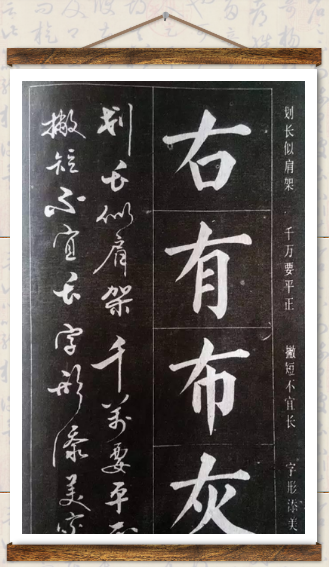 划长似肩架 千万要平正 撇短不宜长 字形添美
右有布灰
划长似肩架千万要平正
撇短不宜长字形添美